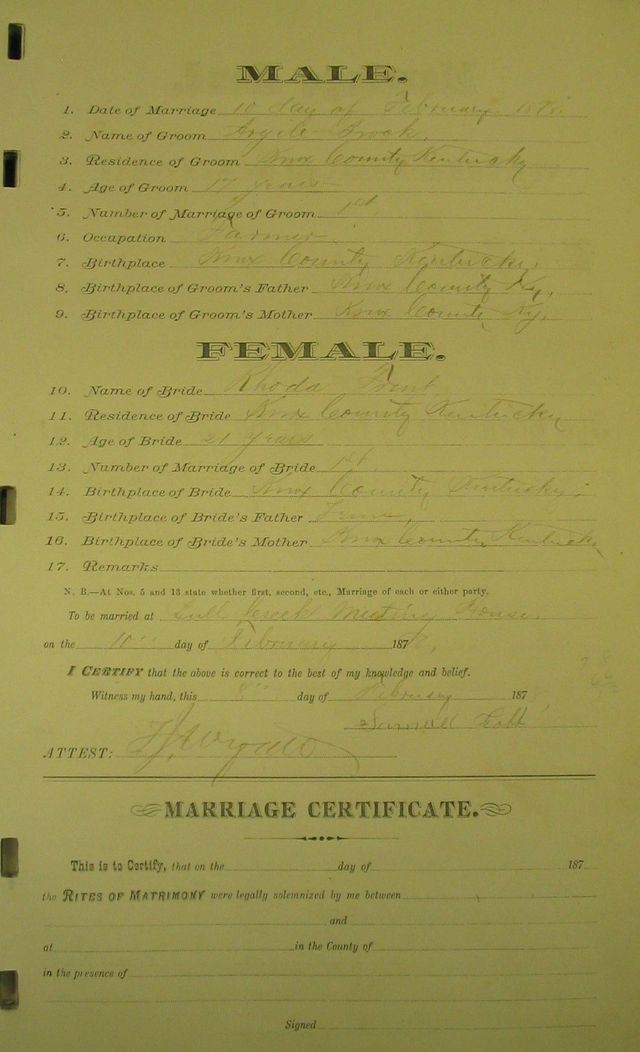 MALE.
1. Date of Marriage 10 day of February 1878
2. Name of Groom Argile Brock,
3. Residence of Groom Knox County Kentucky
4. Age of Groom 17 years
5. Number of Marriage of Groom 1st,
6. Occupation Farmer
7. Birthplace Knox County Kentucky,
8. Birthplace of Groom's Father Knox County Ky,
9. Birthplace of Groom's Mother Knox County Ky,
FEMALE.
10. Name of Bride Rhoda
11. Residence of Bride Knox County Kentucky
12. Age of Bride 21 years
13. Number of Marriage of Bride 1st,
14. Birthplace of Bride Knox County Kentucky;
15. Birthplace of Bride's Father
16. Birthplace of Bride's Mother Knox County Kentucky
17. Remarks
N. B.—At Nos. 5 and 13 state whether first, second, etc., Marriage of each or either party.
To be married at Meeting House,
on the 10 day of February 187
I CERTIFY that the above is correct to the best of my knowledge and belief.
Witness my hand, this 8 day of February 1878
Samuel
ATTEST:
MARRIAGE CERTIFICATE.
This is to Certify, that on the day of 187
the RITES OF MATRIMONY were legally solemnized by me between
and
at in the County of
in the presence of
Signed